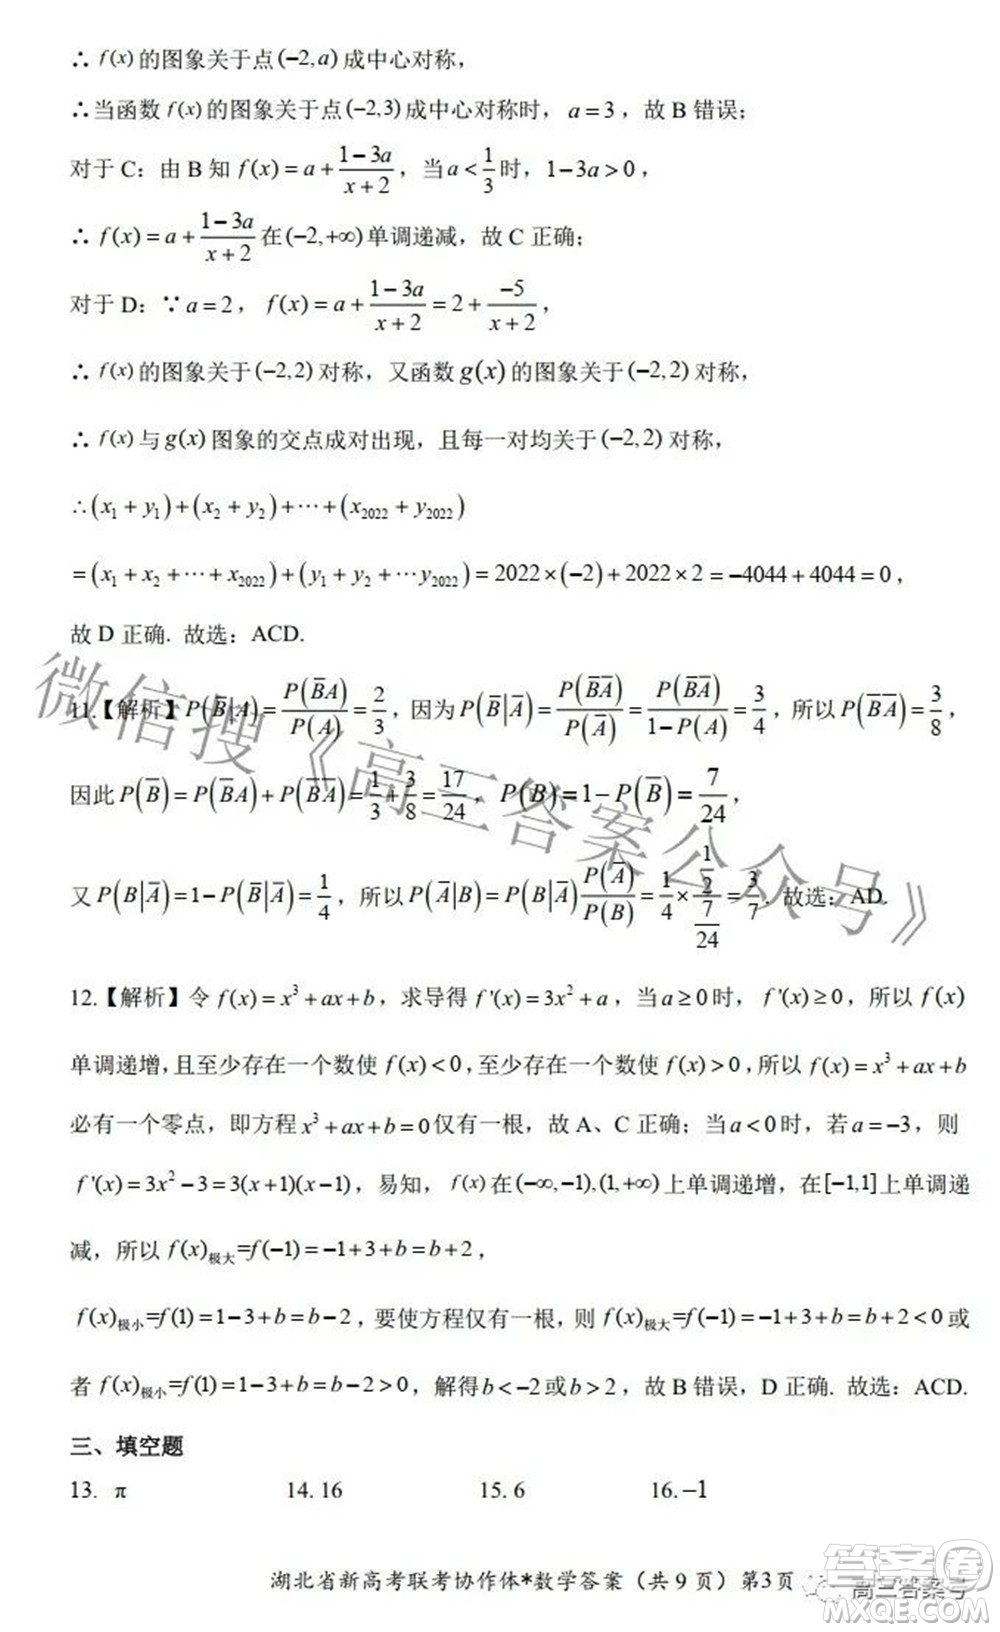 ∴ f(x)的图象关于点(−2,a)成中心对称，
∴当函数 f(x)的图象关于点(−2,3)成中心对称时，a=3，故 B 错误；
对于 C：由 B 知 f(x)=a+(1−3a)/(x+2)，当 a<1/3 时，1−3a>0，
∴ f(x)=a+(1−3a)/(x+2) 在(−2,+∞)单调递减，故 C 正确；
对于 D：∵ a=2，f(x)=a+(1−3a)/(x+2)=2+(−5)/(x+2)，
∴ f(x)的图象关于(−2,2)对称，又函数 g(x)的图象关于(−2,2)对称，
∴ f(x)与g(x)图象的交点成对出现，且每一对均关于(−2,2)对称，
∴(x₁+y₁)+(x₂+y₂)+⋯+(x₂₀₂₂+y₂₀₂₂)
=(x₁+x₂+⋯+x₂₀₂₂)+(y₁+y₂+⋯y₂₀₂₂)=2022×(−2)+2022×2=−4044+4044=0，
故 D 正确. 故选：ACD.
11.【解析】P(B̅|A)=P(B̅A)/P(A)=2/3，因为 P(B̅|A̅)=P(B̅A̅)/P(A̅)=P(B̅A̅)/(1−P(A))=3/4，所以 P(B̅A̅)=3/8，
因此 P(B̅)=P(B̅A)+P(B̅A̅)=1/3+3/8=17/24，P(B)=1−P(B̅)=7/24，
又 P(B|A̅)=1−P(B̅|A̅)=1/4，所以 P(A̅|B)=P(B|A̅)P(A̅)/P(B)=1/4×(1/2)/(7/24)=3/7. 故选：AD.
12.【解析】令 f(x)=x³+ax+b，求导得 f'(x)=3x²+a，当 a≥0 时，f'(x)≥0，所以 f(x)
单调递增，且至少存在一个数使 f(x)<0，至少存在一个数使 f(x)>0，所以 f(x)=x³+ax+b
必有一个零点，即方程 x³+ax+b=0仅有一根，故 A、C 正确；当a<0时，若a=−3，则
f'(x)=3x²−3=3(x+1)(x−1)，易知，f(x)在(−∞,−1),(1,+∞)上单调递增，在[−1,1]上单调递
减，所以 f(x)极大=f(−1)=−1+3+b=b+2，
f(x)极小=f(1)=1−3+b=b−2，要使方程仅有一根，则 f(x)极大=f(−1)=−1+3+b=b+2<0或
者 f(x)极小=f(1)=1−3+b=b−2>0，解得b<−2或b>2，故 B 错误，D 正确. 故选：ACD.
三、填空题
13. π 14. 16 15. 6 16. −1
湖北省新高考联考协作体*数学答案（共 9 页）第3页
微信搜《高三答案公众号》
高三答案号
答案圈
MXQE.COM